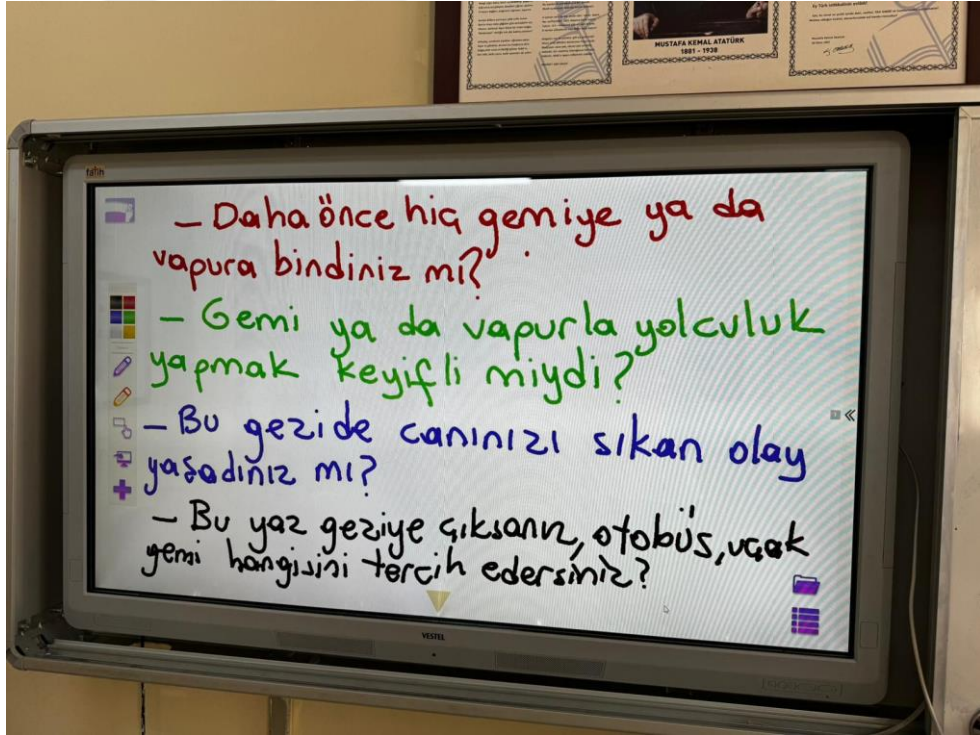 MUSTAFA KEMAL ATATÜRK
1881 - 1938
fatih
- Daha önce hiç gemiye ya da
vapura bindiniz mi?
- Gemi ya da vapurla yolculuk
yapmak keyifli miydi?
- Bu gezide canınızı sıkan olay
yaşadınız mı?
- Bu yaz geziye çıksanız, otobüs, uçak
gemi hangisini tercih edersiniz?
VESTEL